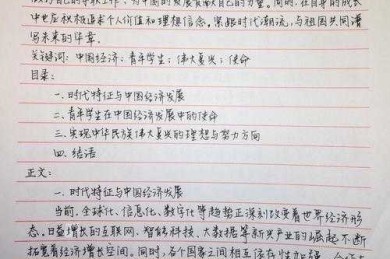 中也应积极追求个人价值和理想信念。紧跟时代潮流，与祖国共同谱
写未来的华章。
关键词：中国经济；青年学生；伟大复兴；使命
目录：
一、时代特征与中国经济发展
二、青年学生在中国经济发展中的使命
三、实现中华民族伟大复兴的理想与努力方向
四、结语
正文：
一、时代特征与中国经济发展
当前，全球化、信息化、数字化等趋势正深刻改变着世界经济形
态。日益增长的互联网、智能科技、大数据等新兴产业的崛起不断
拓宽着经济增长空间。同时，各个国家之间相互依存性加强，合作与